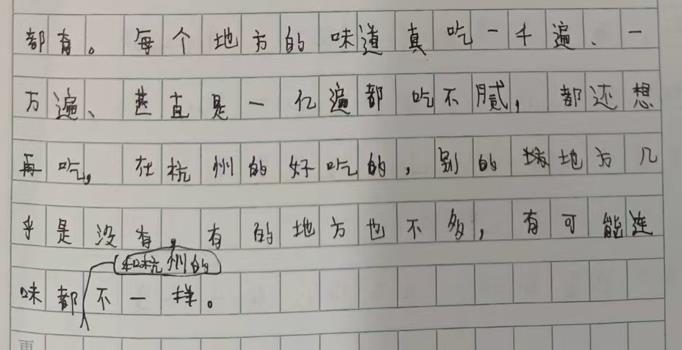 都有。每个地方的味道真吃一千遍、一
万遍、甚直是一亿遍都吃不腻，都还想
再吃，在杭州的好吃的，别的地方几
乎是没有，有的地方也不多，有可能连
和杭州的
味都不一样。